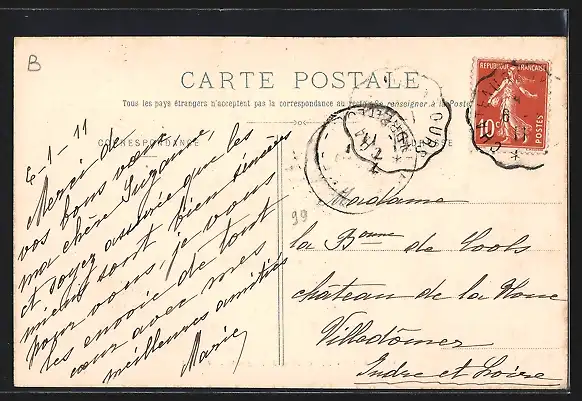 B
CARTE POSTALE
Tous les pays étrangers n'acceptent pas la correspondance au recto. Se renseigner à la Poste
CORRESPONDANCE
6-1-11
Merci de
vos bons vœux
ma chère Suzanne,
et soyez assurée que les
miens sont bien sincères
pour vous, je vous
les envoie de tout
cœur avec mes
meilleures amitiés
Marie
99
REPUBLIQUE FRANÇAISE
10c
POSTES
Madame
la Bonne de Cools
château de la
Villedômer
Indre et Loire